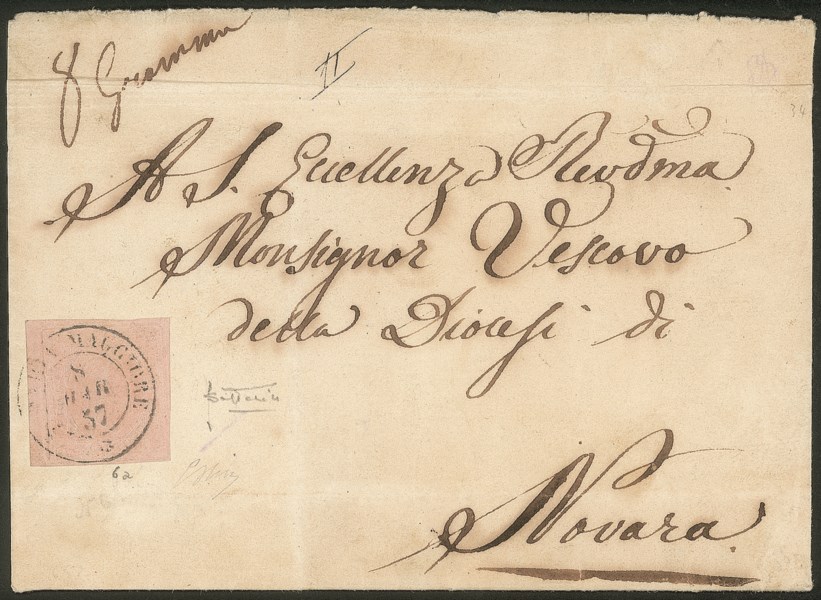 8 Gramma
II
34
A S. Eccellenza Revdma
Monsignor Vescovo
della Diocesi di
Novara
MAGGIORE
8
MAR
57
3
6a